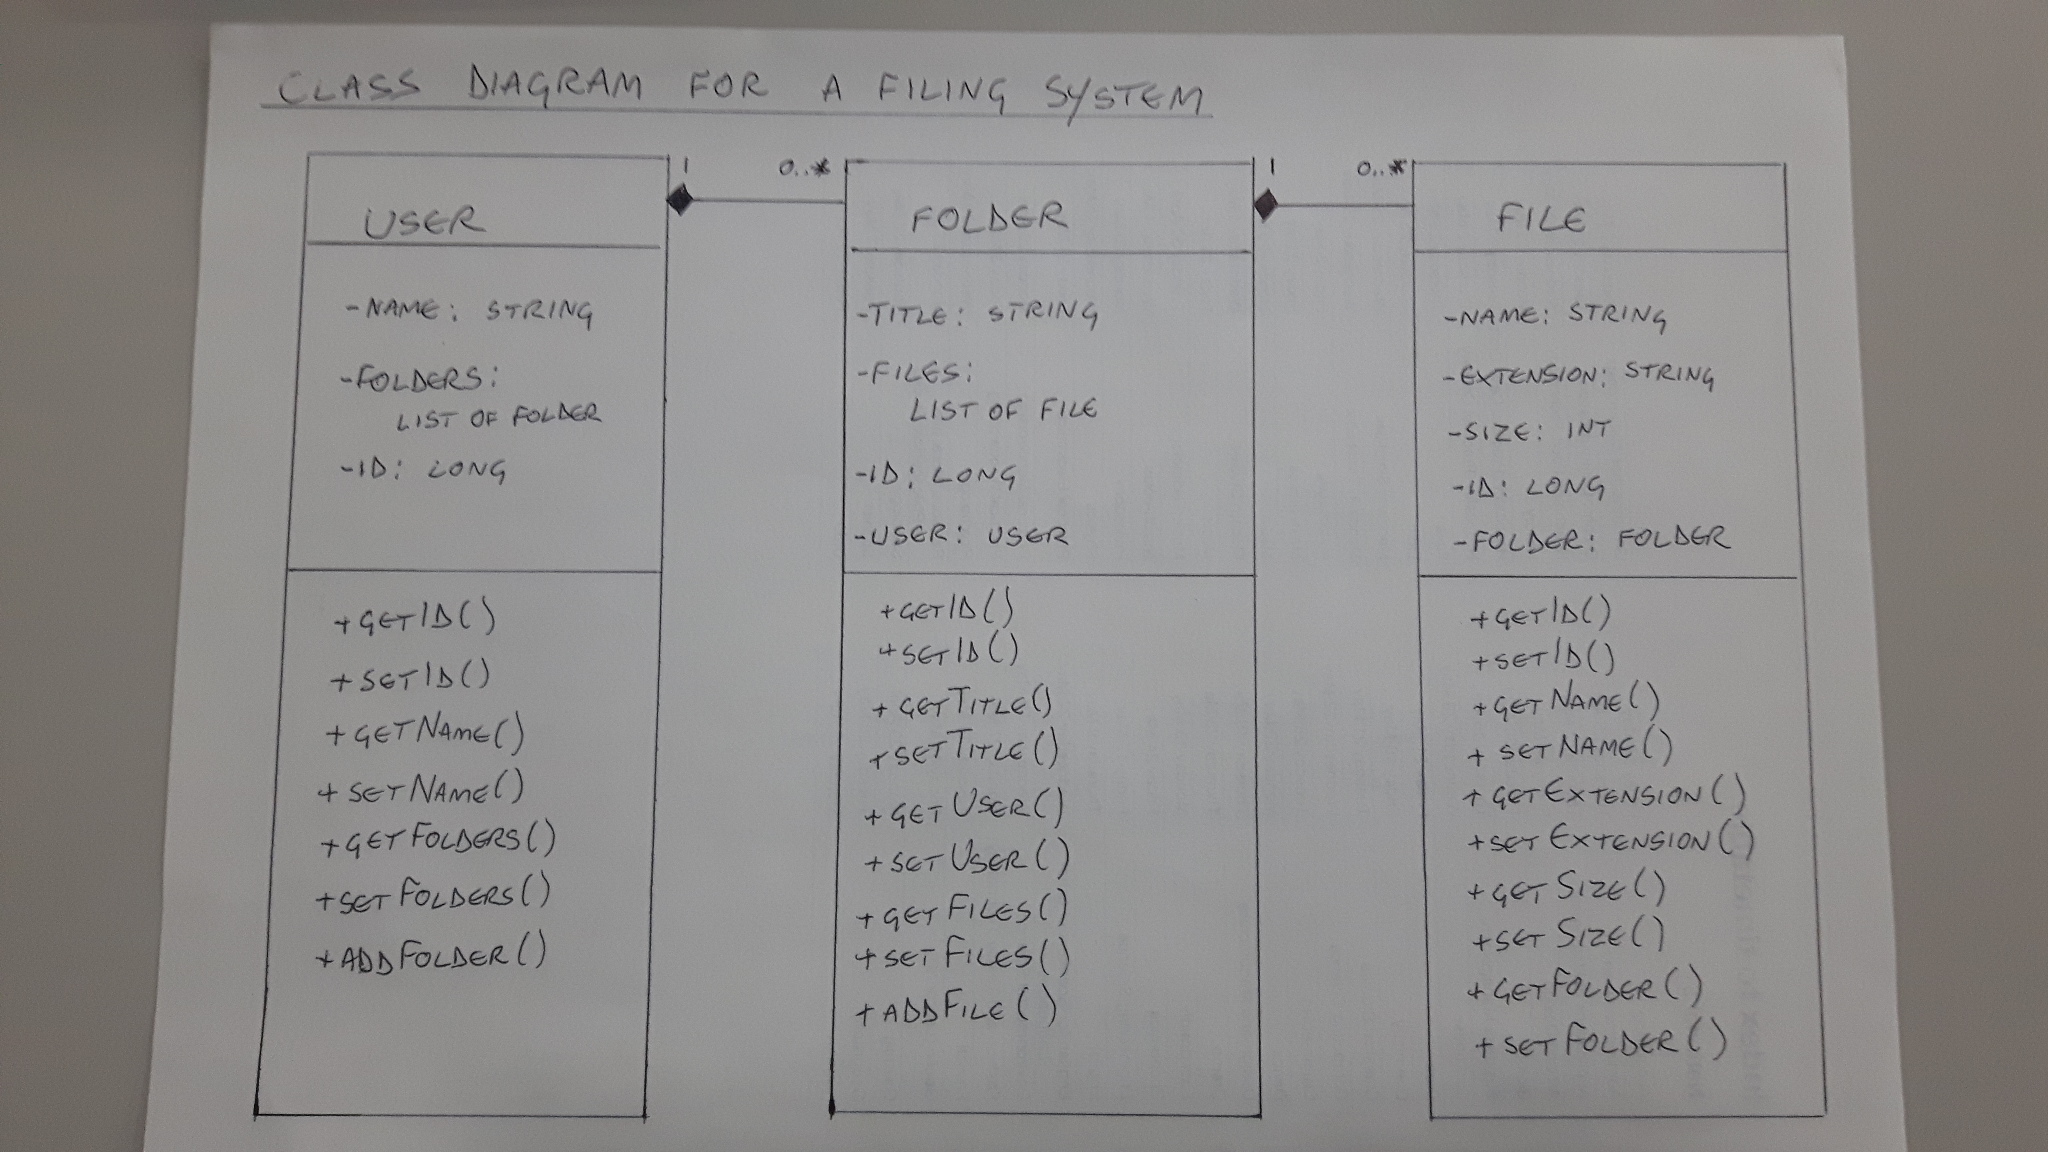 CLASS DIAGRAM FOR A FILING SYSTEM
1 0..*
1 0..*
USER
-NAME: STRING
-FOLDERS:
LIST OF FOLDER
-ID: LONG
+GETID()
+SETID()
+GETNAME()
+SETNAME()
+GETFOLDERS()
+SETFOLDERS()
+ADDFOLDER()
FOLDER
-TITLE: STRING
-FILES:
LIST OF FILE
-ID: LONG
-USER: USER
+GETID()
+SETID()
+GETTITLE()
+SETTITLE()
+GETUSER()
+SETUSER()
+GETFILES()
+SETFILES()
+ADDFILE()
FILE
-NAME: STRING
-EXTENSION: STRING
-SIZE: INT
-ID: LONG
-FOLDER: FOLDER
+GETID()
+SETID()
+GETNAME()
+SETNAME()
+GETEXTENSION()
+SETEXTENSION()
+GETSIZE()
+SETSIZE()
+GETFOLDER()
+SETFOLDER()